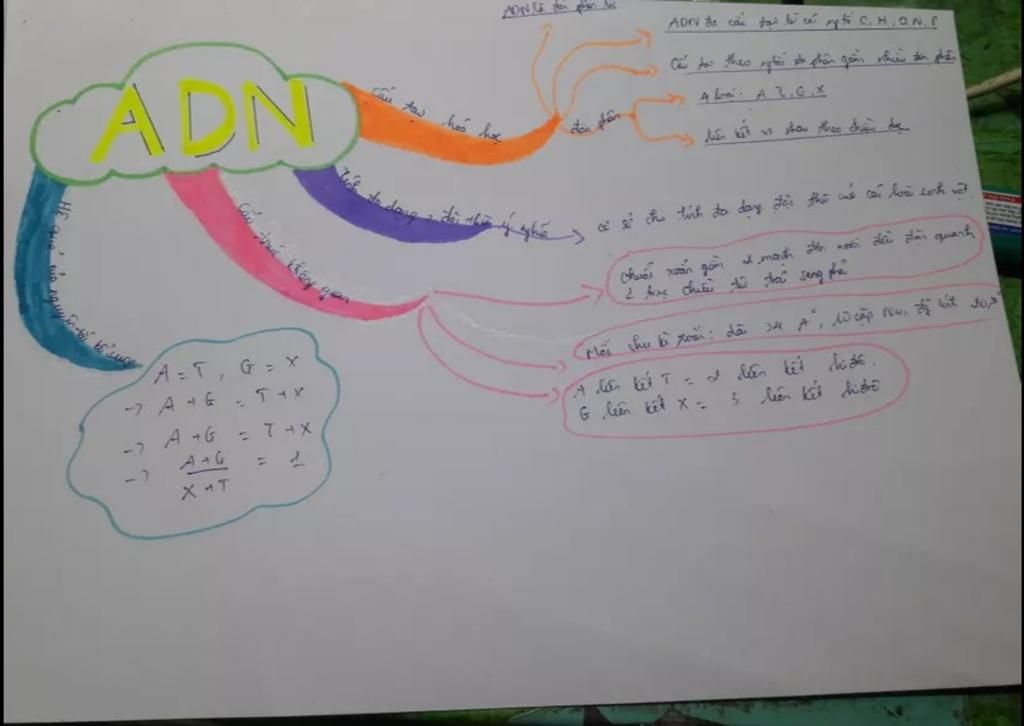 ADN
ADN là đại phân tử
cấu tạo hoá học
ADN đc cấu tạo từ các ngtố C, H, O, N, P
Cấu tạo theo ngtắc đa phân gồm nhiều đơn phân
đơn phân
4 loại: A, T, G, X
liên kết vs nhau theo chiều dọc
Tính đa dạng, đặc thù ý nghĩa
cơ sở cho tính đa dạng đặc thù của các loài sinh vật
Cấu trúc không gian
chuỗi xoắn gồm 2 mạch đơn xoắn đều đặn quanh
1 trục chiều từ trái sang phải
Mỗi chu kì xoắn: dài 34 A°, 10 cặp Nu,
A liên kết T = 2 liên kết hiđrô.
G liên kết X = 3 liên kết hiđrô
Hệ quả, nguyên tắc bổ sung
A = T, G = X
-> A+G = T+X
-> A+G = T+X
-> A+G / X+T = 1